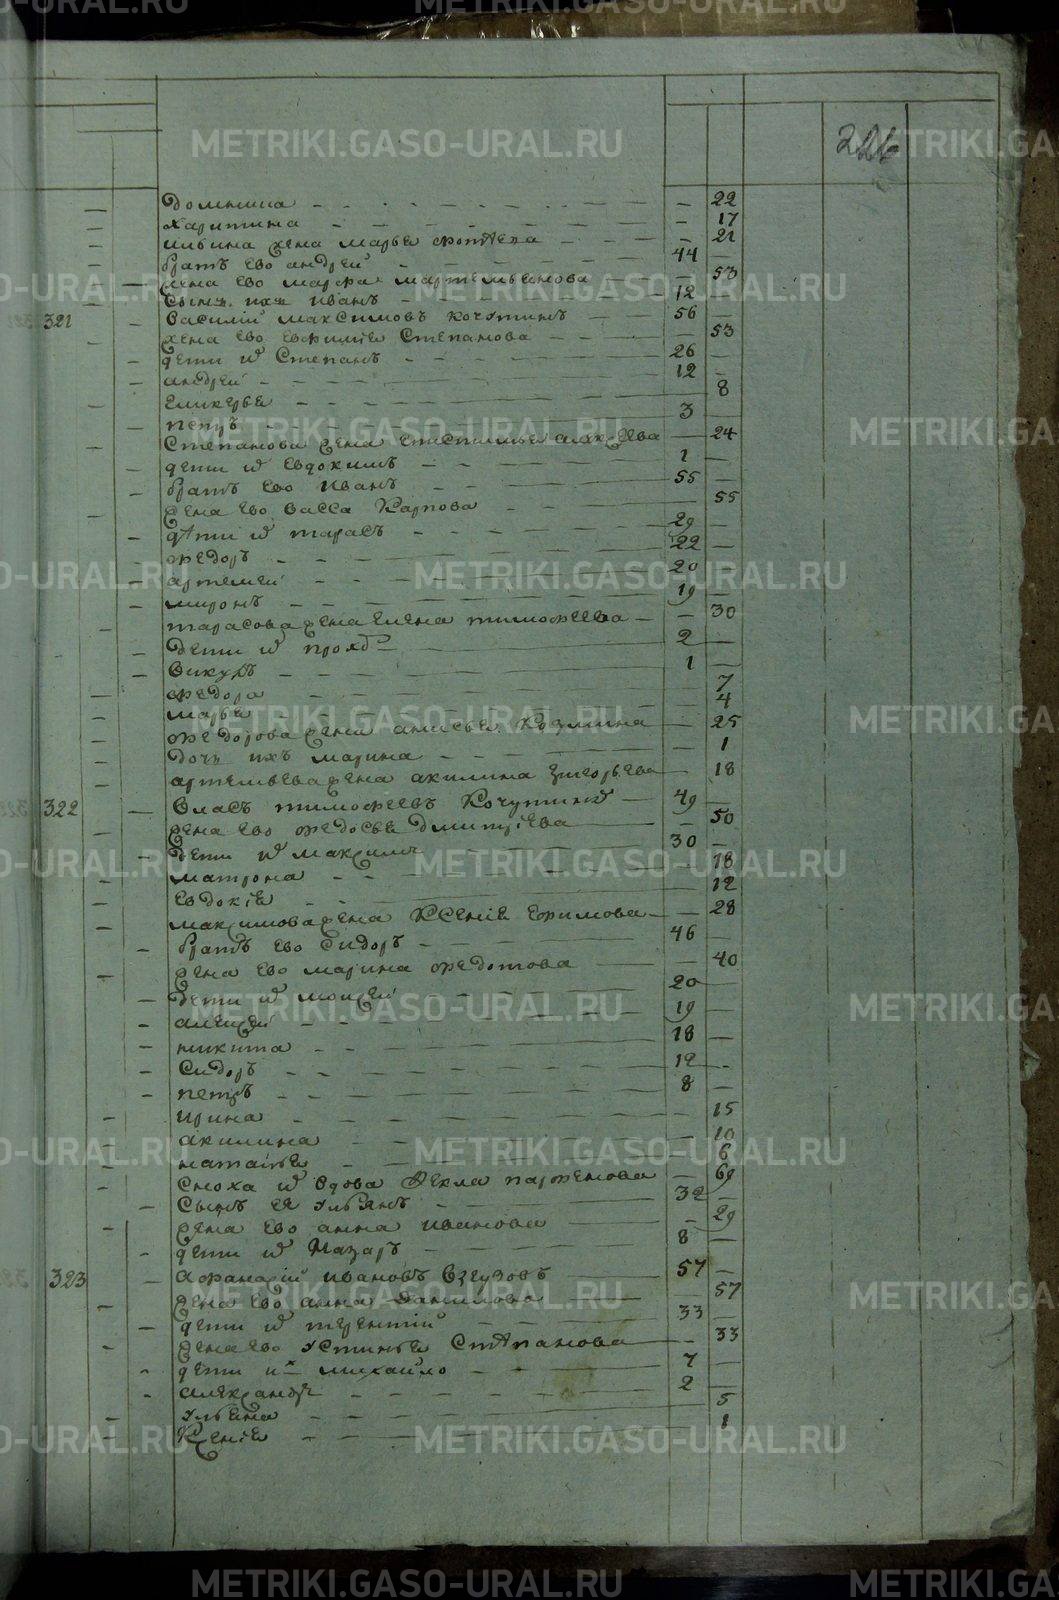 226
Домника 22
Харитина 17
Ильина жена Марье Фотѣева 21
братъ ево Андрей 44
жена ево Марфа Мартемьенова 53
Сынъ ихъ Иванъ 12
321 Василий Максимовъ Кочутинъ 56
жена ево Евфимие Степанова 53
дети и Степанъ 26
Андрей 12
Гликерье 8
Петръ 3
Степанова жена Епистимье 24
дети и Евдокимъ 1
братъ ево Иванъ 55
жена ево Васса Карпова 55
дѣти и Тарасъ 29
Федоръ 22
Артемей 20
Миронъ 19
Тарасова жена Елена Тимофеева 30
дети и 2
Викулъ 1
Федора 7
Марье 4
Федорова жена Анисье Козмина 25
Дочь ихъ Марина 1
Артемьева жена Акилина Григорьева 18
322 Власъ Тимофеевъ Кочутинъ 49
жена ево Федосье Дмитриева 50
дети и Максимъ 30
Матрона 18
Евдокие 12
Максимова жена Ксение Ефимова 28
братъ ево Сидоръ 46
жена ево Марина Федотова 40
дети и Моисей 20
Алексей 19
Никита 18
Сидоръ 12
Петръ 8
Ирина 15
Акилина 10
Наталье 6
Сноха и вдова Фекла Парфенова 69
Сынъ ея Ульянъ 32
жена ево Анна Иванова 29
дети и Назаръ 8
323 Афанасий Ивановъ 57
жена ево Анна Данилова 57
дети и Терентий 33
жена ево Устинье Стѣпанова 33
дети ихъ Михайло 7
Александръ 2
Ульена 5
Ксение 1
METRIKI.GASO-URAL.RU